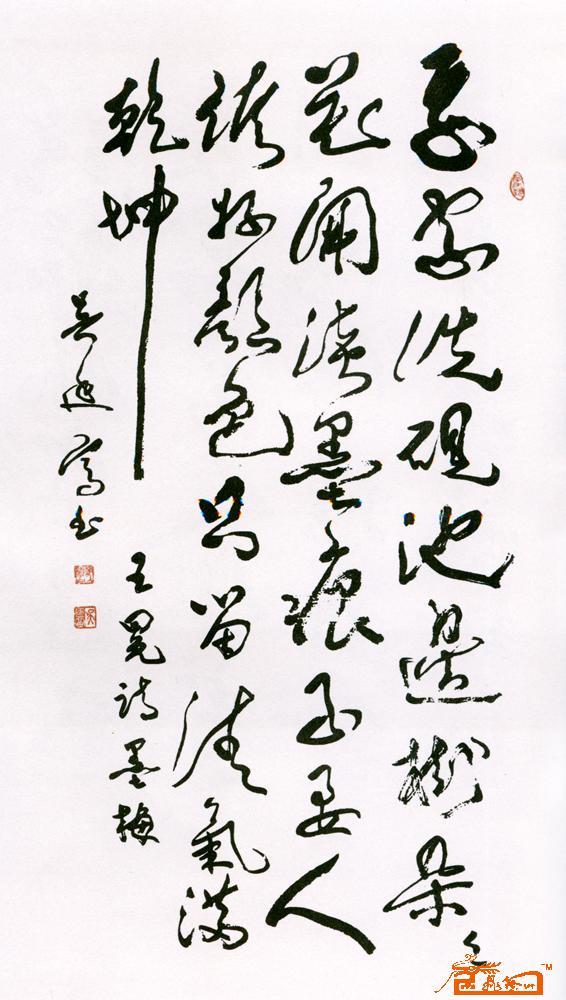 吾家洗硯池邊樹朵々
花開淡墨痕不要人
誇好顏色只留清氣滿
乾坤
王冕詩墨梅